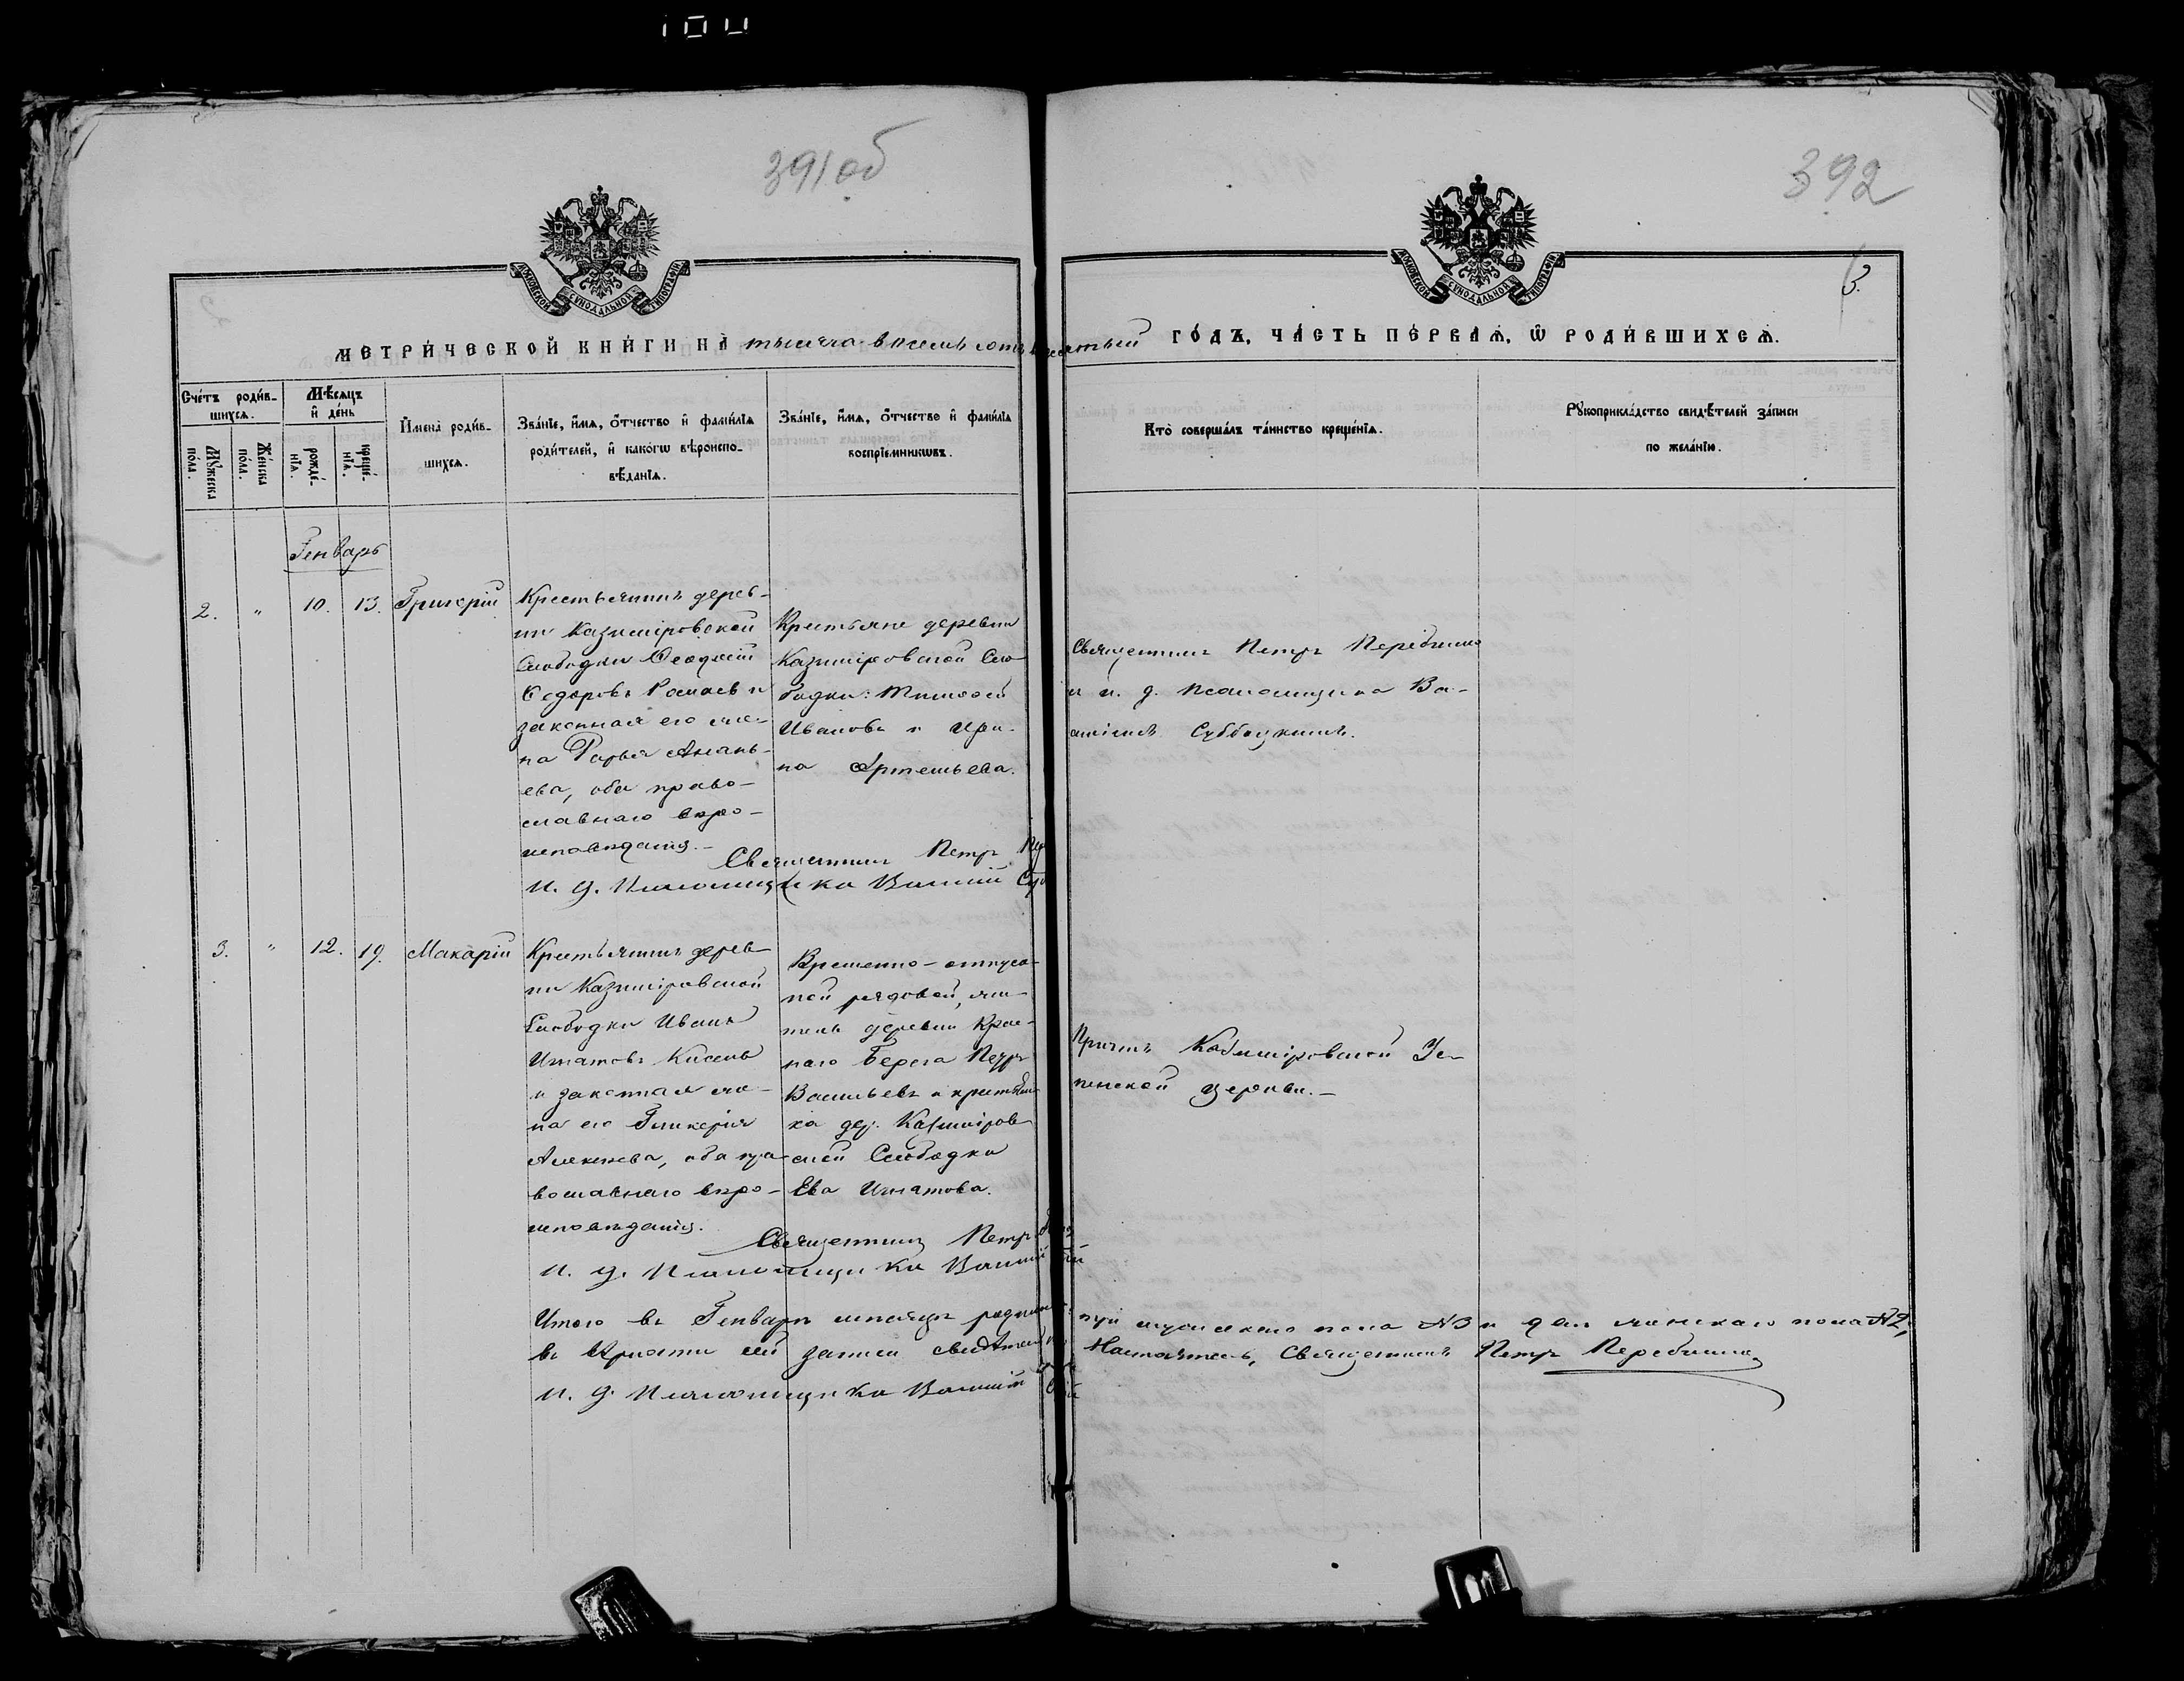 391об
392
3.
МОСКОВСКОЙ СѴНОДАЛЬНОЙ ТИПОГРАФІИ
МОСКОВСКОЙ СѴНОДАЛЬНОЙ ТИПОГРАФІИ
МЕТРИ́ЧЕСКОЙ КНИ́ГИ НА̀ тысяча восемь сотъ
ГО́ДЪ, ЧА́СТЬ ПЕ́РВАѦ, Ѡ҆ РОДИ́ВШИХСѦ.
Сче́тъ роди́в-
шихсѧ.
Мꙋ́жеска
по́ла.
Же́нска
по́ла.
Мѣ́сѧцъ
и҆ де́нь
рожде́-
нїѧ.
креще́-
нїѧ.
И҆мена̀ роди́в-
шихсѧ.
Зва́нїе, и҆́мѧ, ѻ҆́тчество и҆ фами́лїѧ
роди́телей, и҆ како́гѡ вѣроиспо-
вѣ́данїѧ.
Зва́нїе, и҆́мѧ, ѻ҆́тчество и҆ фами́лїѧ
воспрїе́мникѡвъ.
Кто̀ соверша́лъ та́инство креще́нїѧ.
Рꙋкоприкла́дство свидѣ́телей за́писи
по жела́нїю.
Генварь
2. " 10. 13. Григорій
Крестьянинъ дерев-
ни Казимировской
Слободки
Ѳедоровъ и
законная его же-
на Дарья Анань-
ева, оба право-
славнаго вѣро-
исповѣданія.-
Крестьяне деревни
Казимировской Сло-
бодки: Тимоѳей
Ивановъ и Ири-
на Артемьева.
Священникъ Петръ
и и. д. псаломщика Ва-
силій
Священникъ Петръ
И. д. Псаломщика Василій
3. " 12. 19. Макарій
Крестьянинъ дерев-
ни Казимировской
Слободки Иванъ
Игнатовъ
и законная же-
на его Гликерія
Алексѣева, оба пра-
вославнаго вѣро-
исповѣданія.
Временно-отпуск-
ной рядовой, жи-
тель деревни Крас-
наго Берега Петръ
Васильевъ и крестьян-
ка дер. Казимиров-
ской Слободки
Ева Игнатова.
Причтъ Казимировской Ус-
пенской церкви.-
Священникъ Петръ
И. д. Псаломщика Василій
Итого въ Генварѣ мѣсяцѣ
мужескаго пола №3 и два женскаго пола №2,
въ вѣрности сей записи
Настоятель, Священникъ Петръ
И. д. Псаломщика Василій